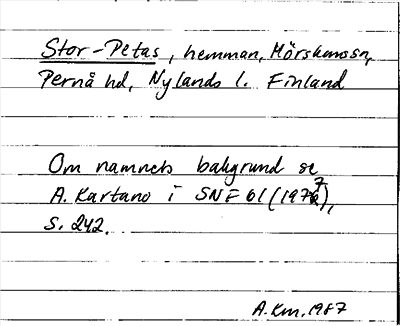 Stor-Petas, hemman, Mörskomssn,
Pernå hd, Nylands l. Finland
Om namnets bakgrund se
A. Kartano i SNF 61 (1977),
s. 242.
A.Km. 1987